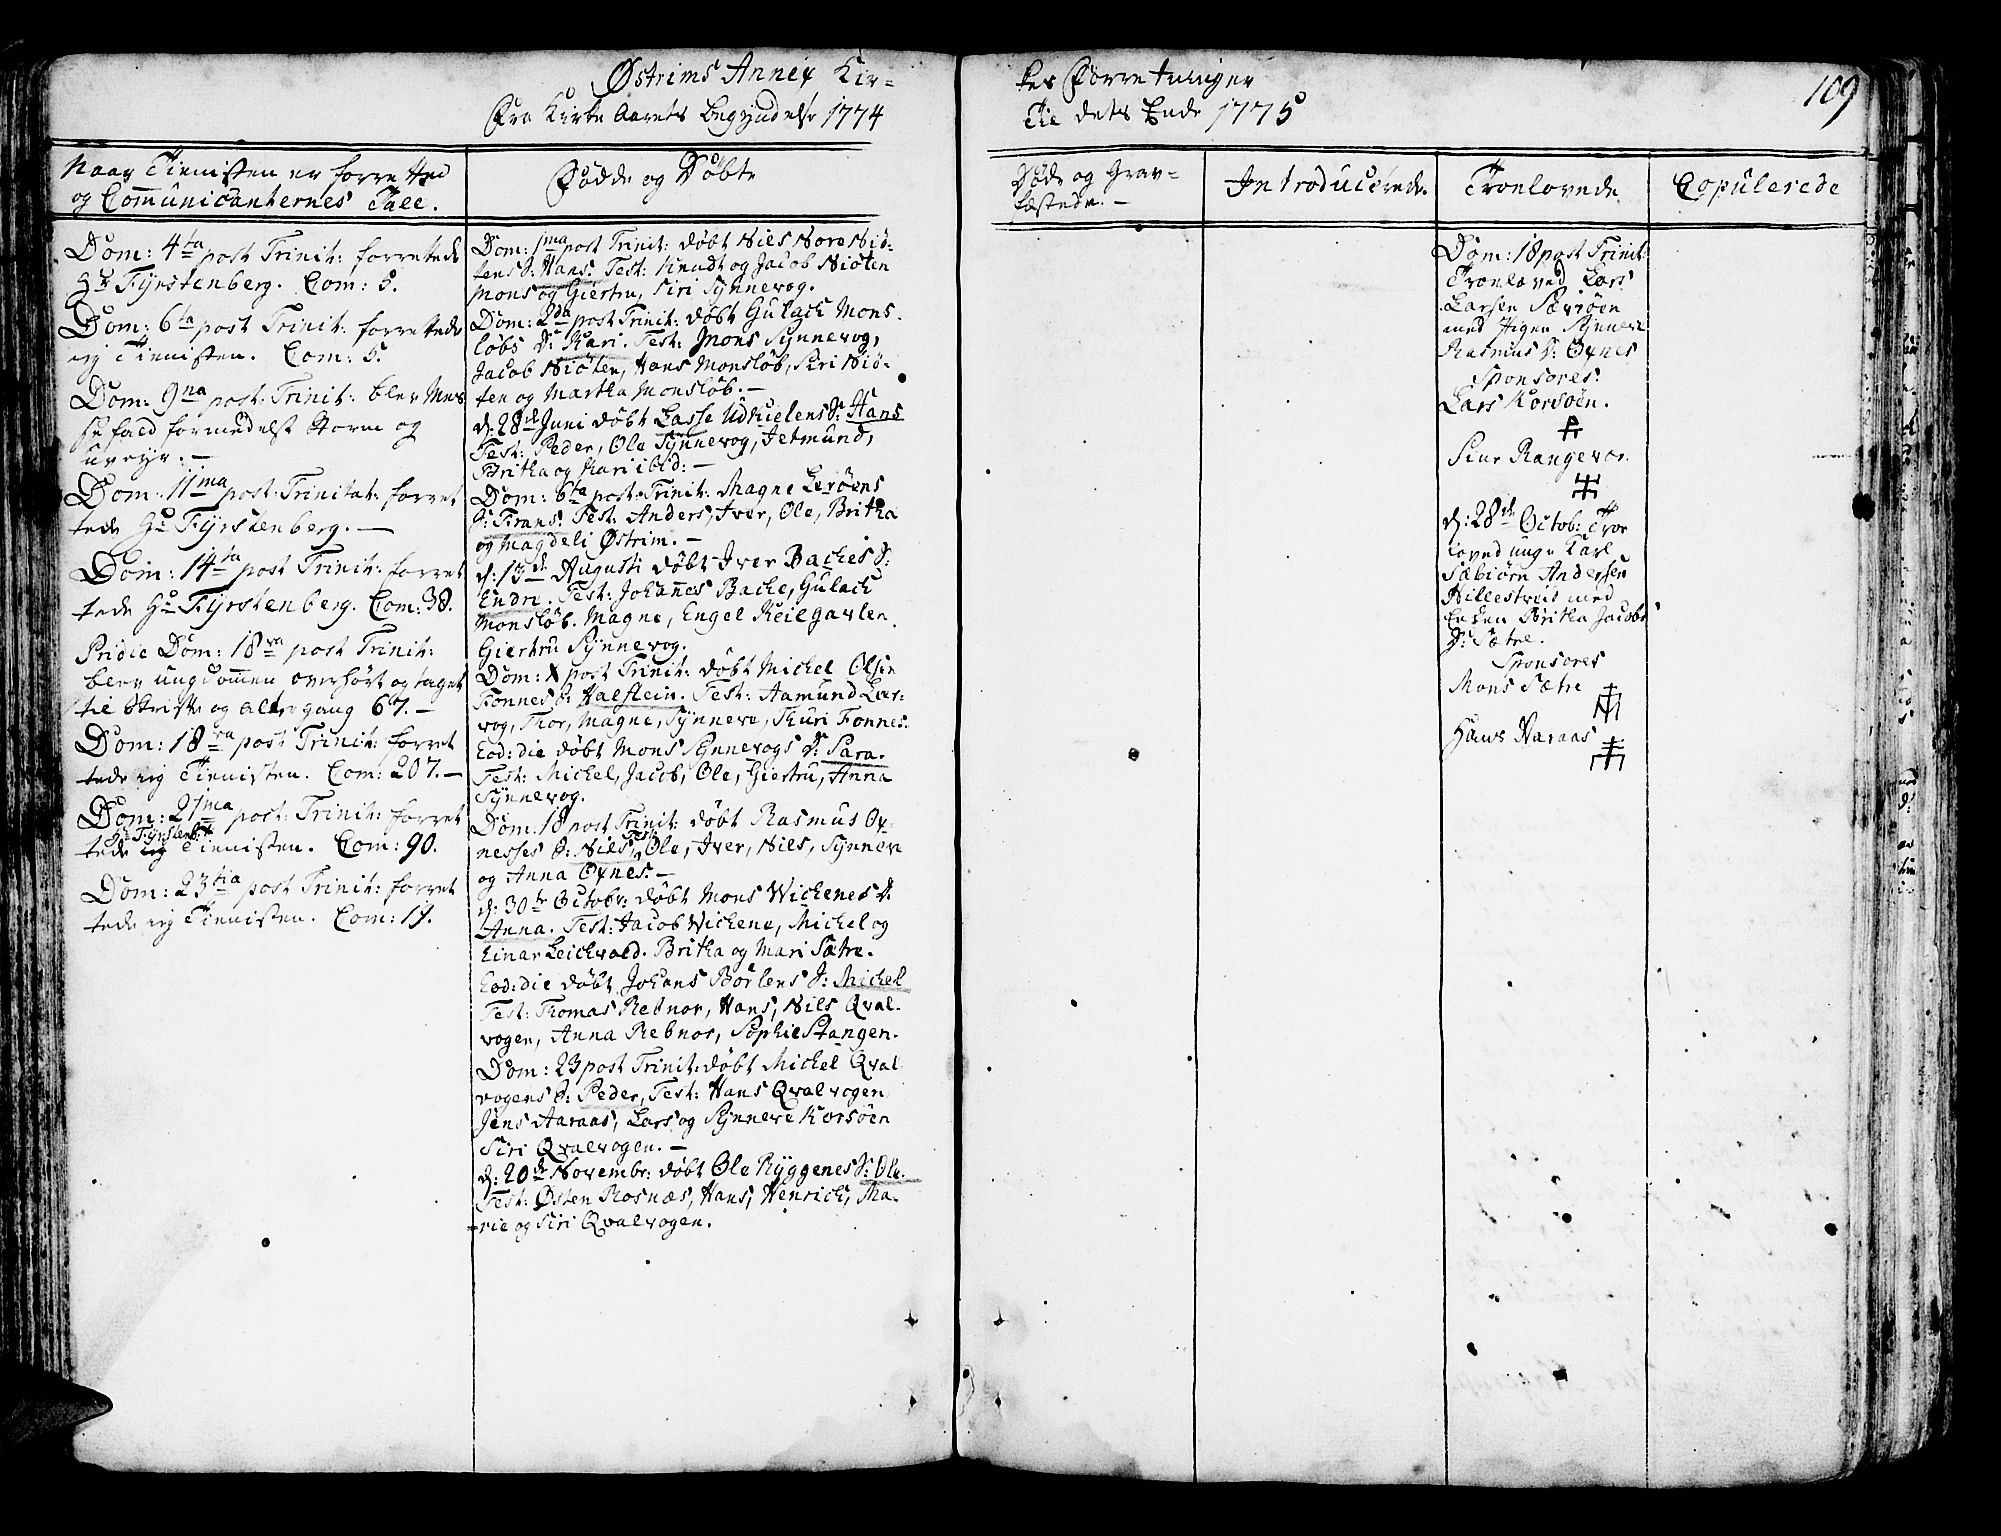 Østrims Annex Kir-
Fra Kirke Aarets begyndelse 1774
Naar Tienisten er forretted
og Com̄unicanternes Tall.
Fødde og Døbte
Dom: 4ta post Trinit: forrettede
Hr Fyrstenberg. Com: 5.
Dom: 6ta post Trinit: forrettede
ieg Tienisten. Com: 5.
Dom: 9na post: Trinit: blev Mes
se fald formedelst Storm og
uveyr. —
Dom: 11ma post: Trinitat: forret
tede Hr Fyrstenberg. —
Dom: 14ta post Trinit: forret
tede Hr Fyrstenberg. Com: 38.
Pridie Dom: 18va post Trinit:
blev ungdom̄en overhørt og taget
til Skrifte og altergang 67. —
Dom: 18va post Trinit: forret
tede ieg Tienisten. Com: 207. —
Dom: 21ma post: Trinit: forret
Hr Fyrstenb:
tede ieg Tienisten. Com: 90.
Dom: 23tia post Trinit: forret
tede ieg Tienisten. Com: 19.
Dom: 1ma post Trinit: døbt Niels Nore Niø-
tens S: Hans. Test: Knudt og Jacob Niøten
Mons og Giertru, Siri Synnevog.
Dom: 2da post Trinit: døbt Gulach Mons-
løbs D: Kari. Test: Mons Synnevog,
Jacob Niøten, Hans Monsløb, Siri Niø-
ten og Martha Monsløb. —
d: 28de Juni døbt Lasse Udkielens S: Hans
Test: Peder, Ole Synnevog, Jetmund,
Britha og Kari ibid: —
Dom: 6ta post: Trinit: Magne Lerøens
S: Frans. Test: Anders, Iver, Ole, Britha
og Magdeli Østrim. —
d: 13de Augusti døbt Iver Baches S:
Endre. Test: Johan̄es Bache, Gulach
Monsløb. Magne, Engel Keilgavlen.
Giertru Synnevog.
Dom: X post Trinit: døbt Michel Olsen
Fonnes S: Halstein. Test: Aamund Ler-
vog, Thor, Magne, Synneve, Thuri Fonnes.
Eod: die døbt Mons Synnevogs D: Sara.
Test: Michel, Jacob, Ole, Giertru, Anna
Synnevog.
Dom: 18 post Trinit: døbt Rasmus Ox-
nesses S: Niels, Test: Ole, Iver, Niels, Synnev
og Anna Oxnes. —
d: 30te Octobr: døbt Mons Wichenes D:
Anna. Test: Jacob Wichene, Michel og
Einar Leichvold. Britha og Mari Sætre.
Eod: die døbt Johans Børlens S: Michel
Test: Thomas Rebnor, Hans, Nils Qval-
vogen, Anna Rebnor, Sophie Stangen.
Dom: 23 post Trinit: døbt Michel Qval
vogens S: Peder, Test: Hans Qvalvogen
Jens Aaraas, Lars og Synneve Korsøen
Siri Qvalvogen. —
d: 20de Novembr: døbt Ole Ryggenes S: Ole.
Test: Østen Rosnæs, Hans, Henrich, Ma-
rie og Siri Qvalvogen.
kes Forretninger
Til dets Ende 1775
109
Døde og Grav-
fæstede. —
Introducerede.
Troelovede.
Copulerede
Dom: 18 post Trinit:
Troeloved Lars
Larsen Særøen
med Pigen Synneve
Rasmus D: Oxnes
Sponsores:
Lars Korsøen.
Siur Rangevog.
d: 28de Octob: Troe
loved unge Karl
Sæbiørn Andersen
Hillestveit med
Enken Britha Jacobs
D: Sætre.
Sponsores
Mons Sætre
Hans Aaraas